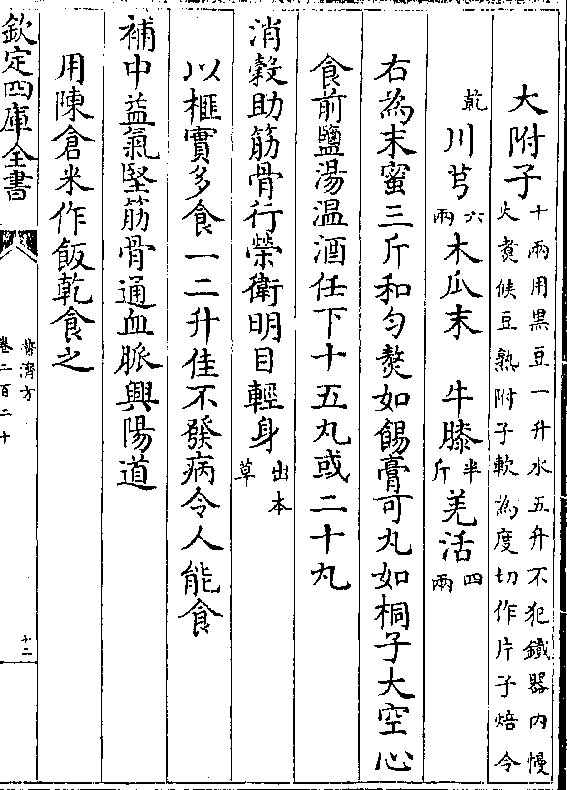 大附子十兩用黒豆一升水五升不犯鐵器内慢火煑候豆熟附子軟為度切作片子焙令
乾川芎六兩木瓜末 牛膝半斤羌活四兩
右為末蜜三斤和匀熬如餳膏可丸如桐子大空心
食前鹽湯温酒任下十五丸或二十丸
消穀助筋骨行榮衛明目輕身出本草
以榧實多食一二升佳不發病令人能食
補中益氣堅筋骨通血脈興陽道
用陳倉米作飯乾食之
欽定四庫全書
普濟方
卷二百二十
十二